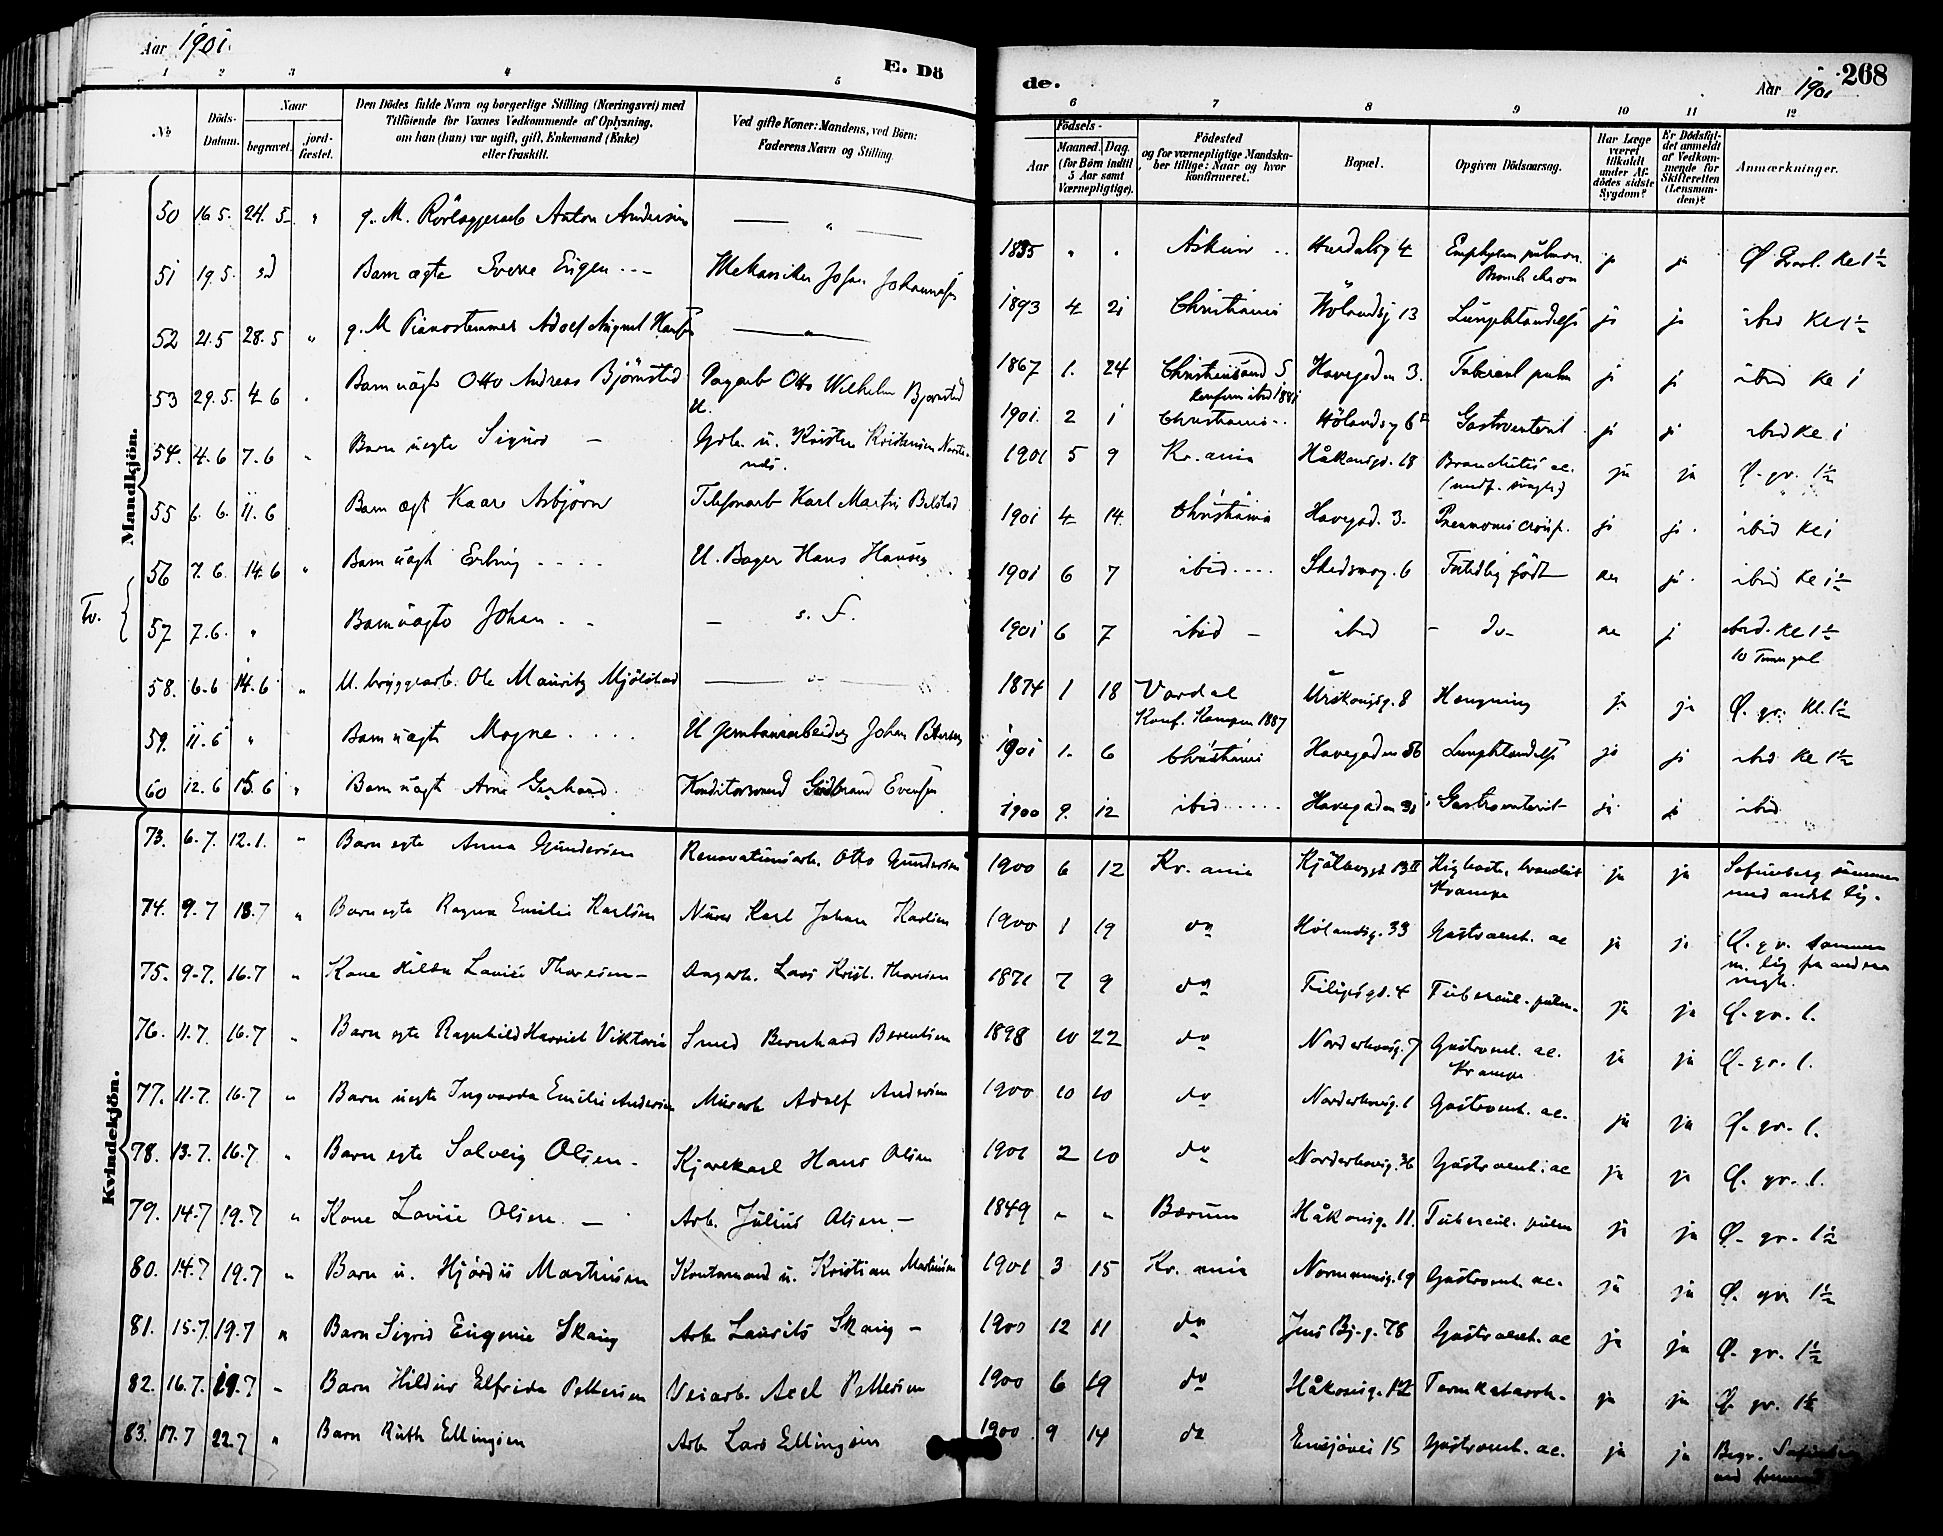 Aar 1901.
E. Dö
de.
Aar 1901
268
1 2 3 4 5 6 7 8 9 10 11 12
No
Döds-Datum.
Naar
begravet.
jord-fæstet.
Den Dödes fulde Navn og borgerlige Stilling (Næringsvei) med
Tilføiende for Voxnes Vedkommende af Oplysning,
om han (hun) var ugift, gift, Enkemand (Enke)
eller fraskilt.
Ved gifte Koner: Mandens, ved Börn:
Faderens Navn og Stilling.
Födsels-
Aar
Maaned. Dag.
(for Børn indtil
5 Aar samt
Værnepligtige).
Födested
og for værnepligtige Mandska-
ber tillige: Naar og hvor
konfirmeret.
Bopæl.
Opgiven Dödsaarsag.
Har Læge
været
tilkaldt
under Af-
dödes sidste
Sygdom?
Er Dödsfal-
det anmeldt
af Vedkom-
mende for
Skifteretten
(Lensman-
den)?
Anmærkninger.
Mandkjön.
50 16.5. 24.5 " g. M. Rörlæggerarb Anton Andersen — " — 1835 " " Askim Hurdalsg 4 Emphysem pulmon. Bronch. chron ja ja Ø Kl 1½
51 19.5. Barn ægte Sverre Eugen Mekaniker Johan Johannesen 1893 4 21 Christiania Hölandsg 13 Lungebetændelse ja ja ibid Kl 1½
52 21.5 28.5 " g. M Pianostemmer Adolf August Hansen — " — 1867 1. 24 Christiansand S Konfirm ibid 1881 Havegaden 3. Tubercul pulm ja ja ibid Kl 1
53 29.5. 4.6 Barn uægte Otto Andreas Björnstad Dagarb Otto Wilhelm Bjørnstad U. 1901. 2 1 Christiania Hölandsg 6 Gastroenterit ja ja ibid Kl 1
54. 4.6 7.6 " Barn uegte Sigurd — u. Kristen Kristensen 1901 5 9 Kr. ania Håkonsgd. 18 Bronchitis ac. (medf. svaghed) ja ja Ø. gr. 1½
55 6.6. 11.6 Barn ægt Kaare Asbjörn Telefonarb Karl Martin 1901 4 14 Christiania Havegad. 3. Pneumoni croup. ja ja ibid Kl 1
Tv.
56 7.6. 14.6 " Barn uægte Erling U. Bager Hans Hansen 1901 6 7 ibid Skedsmog. 6 Fortidlig født nei ja ibid Kl 1½
57 7.6. " Barn uægte Johan — s. F. 1901 6 7 ibid — ibid — do — nei j ibid. Kl 1½ 10 Timer gml
58. 6.6 14.6 " U. bryggearb. Ole Mauritz Mjölstad — " — 1874 1 18 Vardal Konf. Kampen 1887 Urskougsg. 8 Hængning ja ja Ø. gr. Kl. 1½
59. 11.6 " Barn uægte Magne U Jernbanearbeider Johan Petersen 1901 1. 6 Christiania Havegaden 56 Lungebetændelse ja ja ibid Kl 1½
60 12.6 15.6 " Barn uægt Arne Gerhard Konditorsvend Gudbrand Evensen 1900 9. 12 ibid Havegaden 31 Gastroenterit ja ja ibid
Kvindekjön.
73. 6.7. 12.1. " Barn egte Anna Gundersen Renovationsarb. Otto Gundersen 1900 6 12 Kr. ania Kjölberggd. 13 II Kighoste, bronchit Krampe ja ja Sofienberg sammen med andet lig.
74. 9.7 18.7 " Barn egte Ragna Emilie Karlsen Murer Karl Johan Karlsen 1900 1 19 do Hölandsg. 33 Gastroent. ac ja ja Ø. gr. sammen m. lig fra anden megh.
75. 9.7. 16.7 " Kone Hilda Lovise Thoresen — Dagarb. Lars Krist. Thoresen 1871 7 9 do Filipsgd. 4 Tubercul. pulm. ja ja Ø. gr. 1.
76. 11.7. 16.7 " Barn egte Ragnhild Harriet Viktoria Smed Bernhard Berentsen 1898 10 22 do Norderhovsg. 7 Gastroent. ac. Krampe ja ja Ø. gr. 1.
77. 11.7. 16.7 " Barn uegte Ingvarda Emilie Andersen Murarb Adolf Andersen 1900 10 10 do Norderhovsg. 1 Gastroent. ac. ja ja Ø. gr. 1.
78. 13.7. 16.7 " Barn egte Solveig Olsen. Kjørekarl Hans Olsen 1901 2 10 do Norderhovsg. 36 Gastroent. ac ja ja Ø. gr. 1.
79. 14.7 19.7 " Kone Lovise Olsen. — Arb. Julius Olsen. — 1849 " " Bærum Håkonsg. 11. Tubercul. pulm ja ja Ø. gr. 1½
80. 14.7 19.7 " Barn u. Hjördis Martinsen Kontormand u. Kristian Martinsen 1901 3 15 Kr. ania Normannsg. 19 Gastroent. ac. ja ja Ø. gr 1½
81. 15.7. 19.7 " Barn Sigrid Eugenie Skaug Arb. Laurits Skaug — 1900 12 11 do Jens Bj. g. 78 Gastroent. ac ja ja Ø. gr. 1½
82. 16.7. 19.7 " Barn Hildur Elfrida Pettersen Veiarb. Axel Pettersen 1900 6 19 do Håkonsg. 12 Tarmkatarrh. ja ja Ø. gr. 1½
83. 17.7 22.7 " Barn Ruth Ellingsen Arb Lars Ellingsen 1900 9 14 do Ensjövei 15 Gastroent. ac. ja ja Begr.